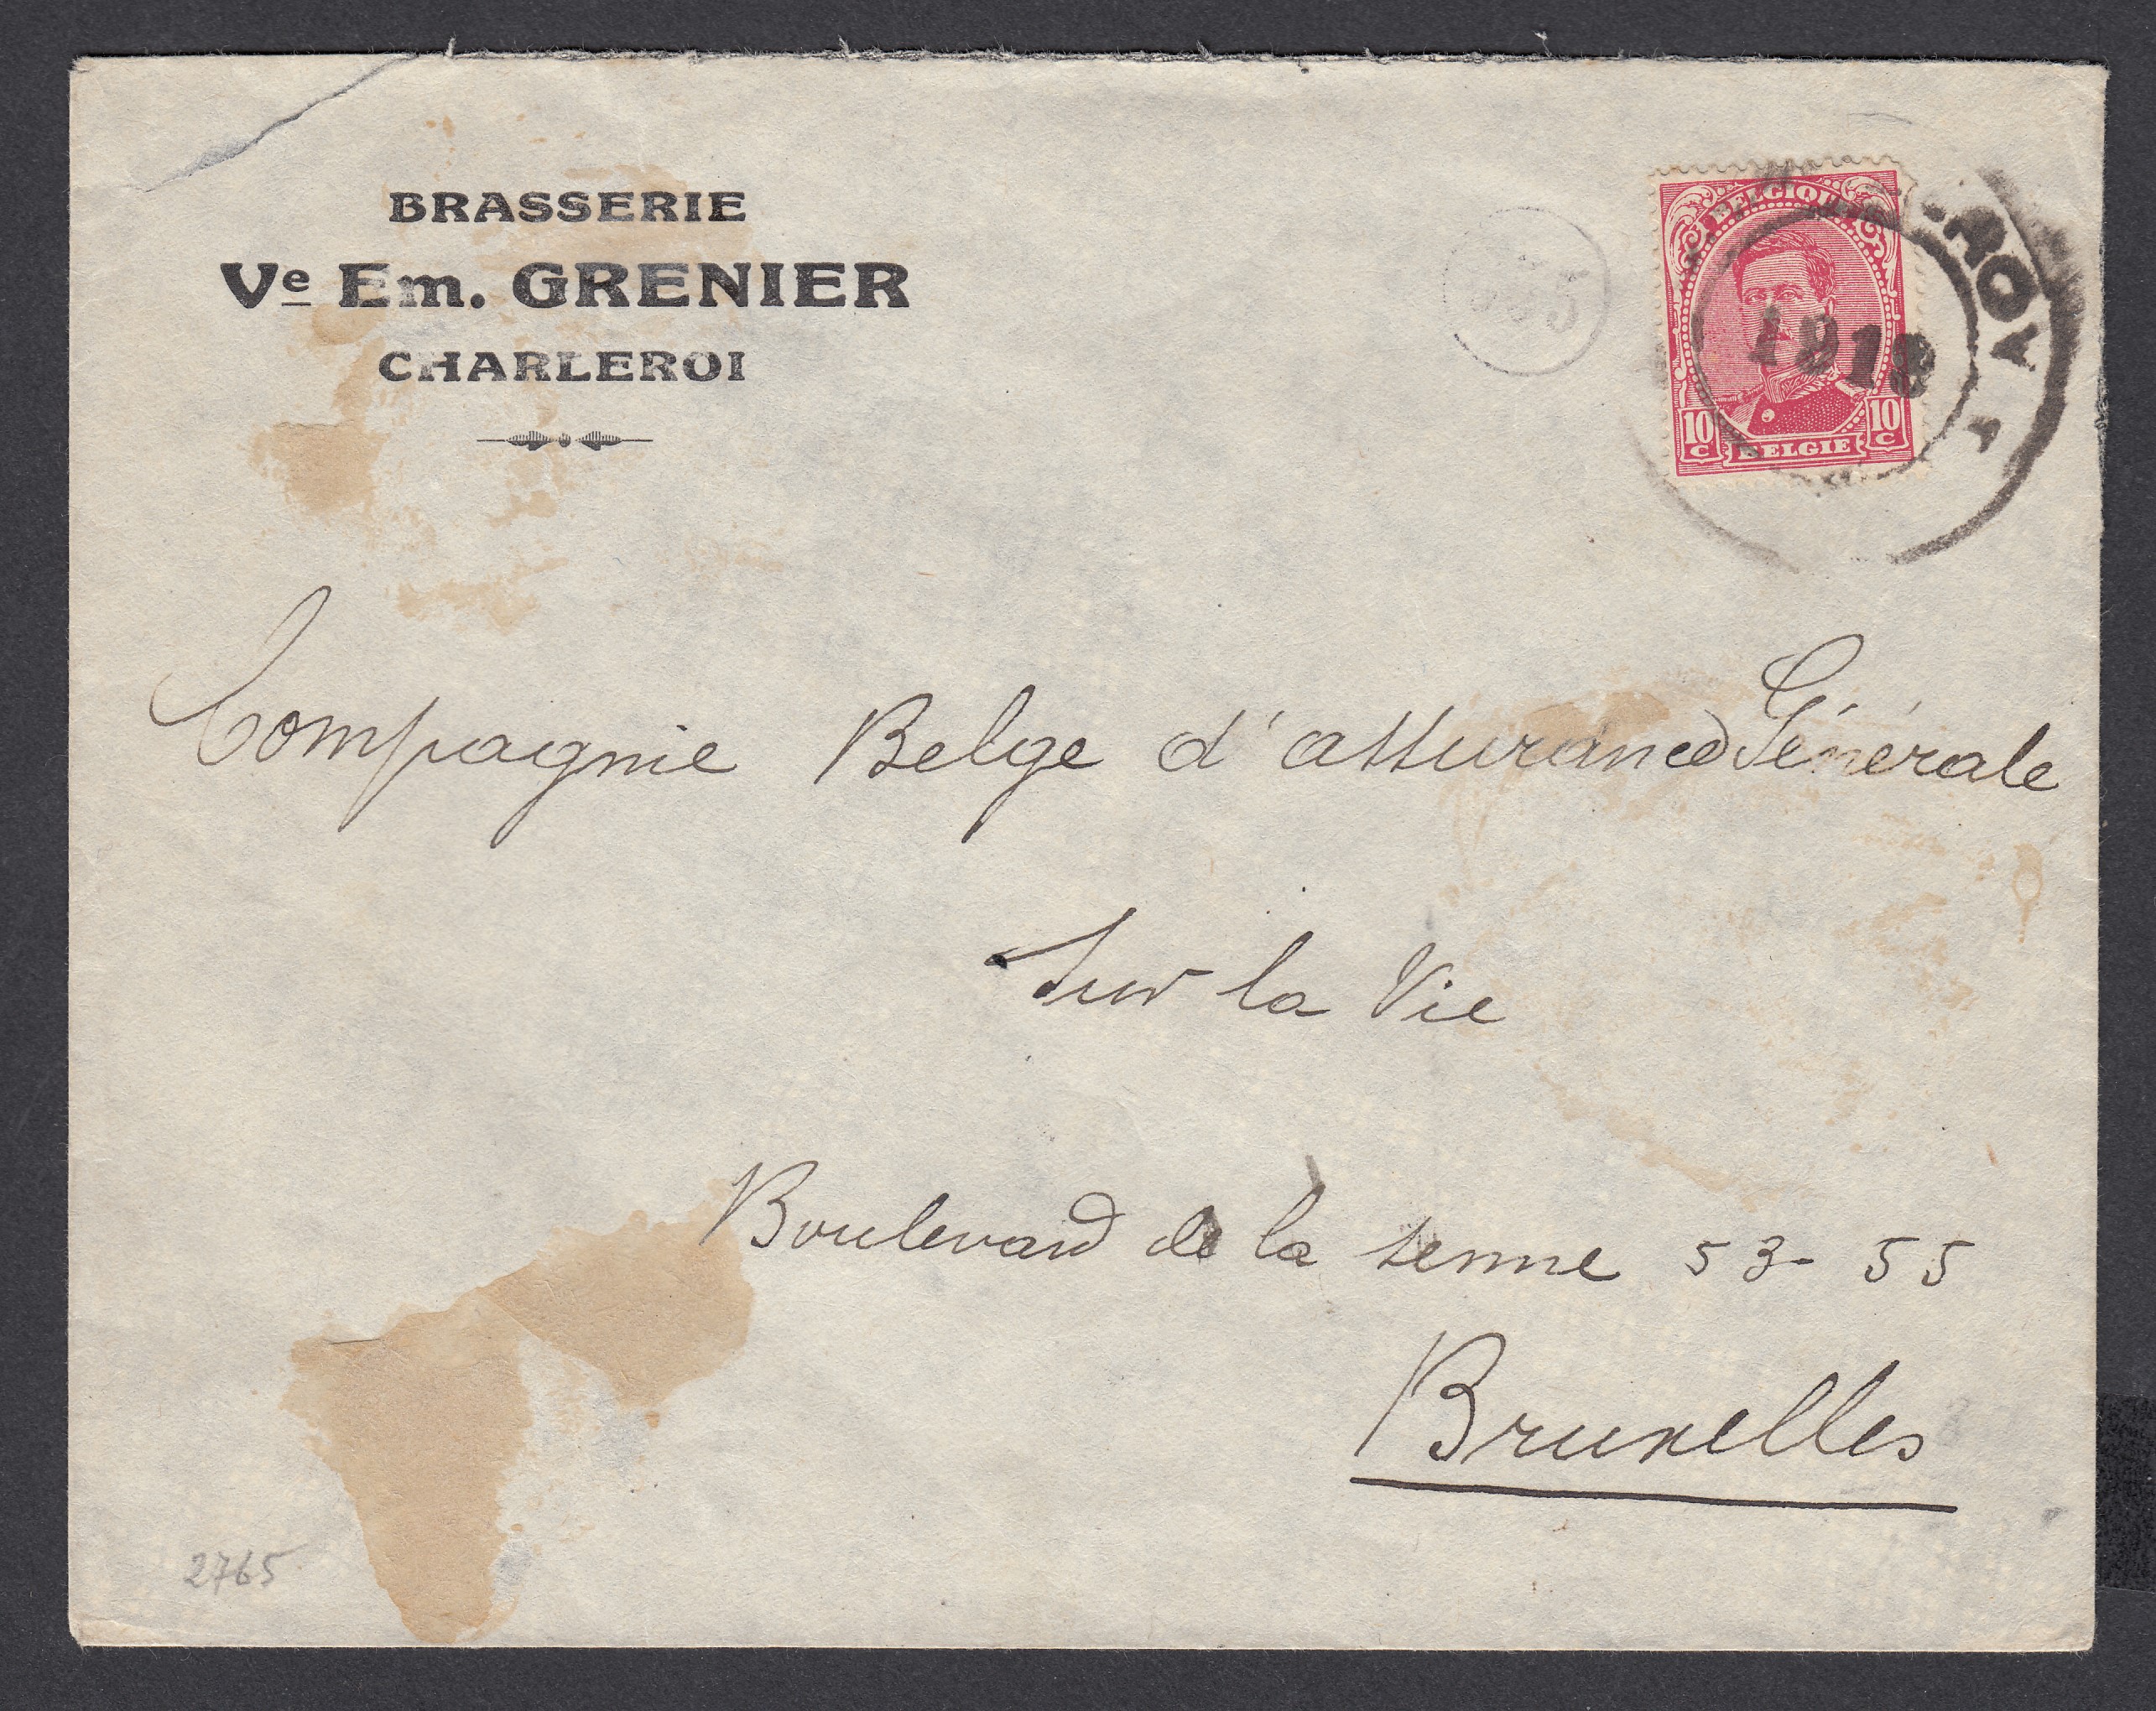 BRASSERIE
Ve Em. GRENIER
CHARLEROI
BELGIQUE
1918
10 C
10 C
BELGIE
Compagnie Belge d'assurance Générale
Sur la Vie
Boulevard de la Senne 53-55
Bruxelles
2765